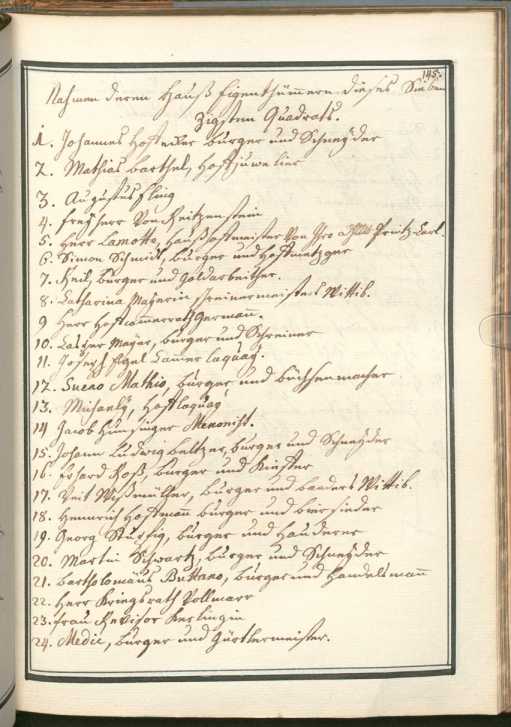 145.
Nahmen deren Hauß Eigenthümmere dieses Sieben
Zigsten Quadrats.
1. Johannes Hostecker burger und Schneyder
2. Mathias barthel, Hoffjuwelier
3. Augustus Eling
4. freyherr Von Reitzenstein
5. Herr Lamotte, Haußhofmeister Von Printz Carl
6. Simon Schmidt, burger und Hoffmetzger
7. Keil, burger und Goldarbeither.
8. Catharina Mayerin schreinermeisters Wittib.
9 Herr Hoffcammerrath Germann.
10. Mayer, burger und Schreiner
11. Joseph Cammer laquay.
12. Mathio, burger und büchsenmacher
13. Michaely, Hofflaquay
14 Jacob Hunsinger Menonist.
15. Johann Ludwig beltzer, burger und Schneyder
16. Erhard Roß, burger und Kiefter
17. Veit burger und Wittib.
18. Henrich Hoffmann burger und biersieder
19. Georg burger und Hauderer
20. Martin Schwartz, burger und Schneyder
21. bartholomäus Buttano, burger und Handelsmann
22. Herr Kriegsrath Vollmarr
23. frau Revisor Kerlingin
24. Medie, burger und Gürtlermeister.